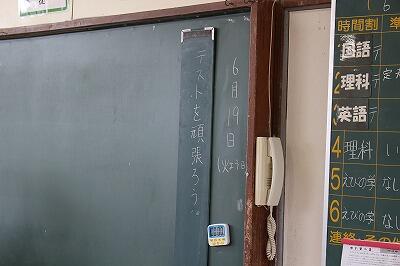 6月19日(火ようび)
テストを頑張ろう。
時間割 準
国語 テ
2 理科 テ
3 英語 テ
4 理科 い
5 えびの学 なし
6 えびの学 なし
連絡・その他